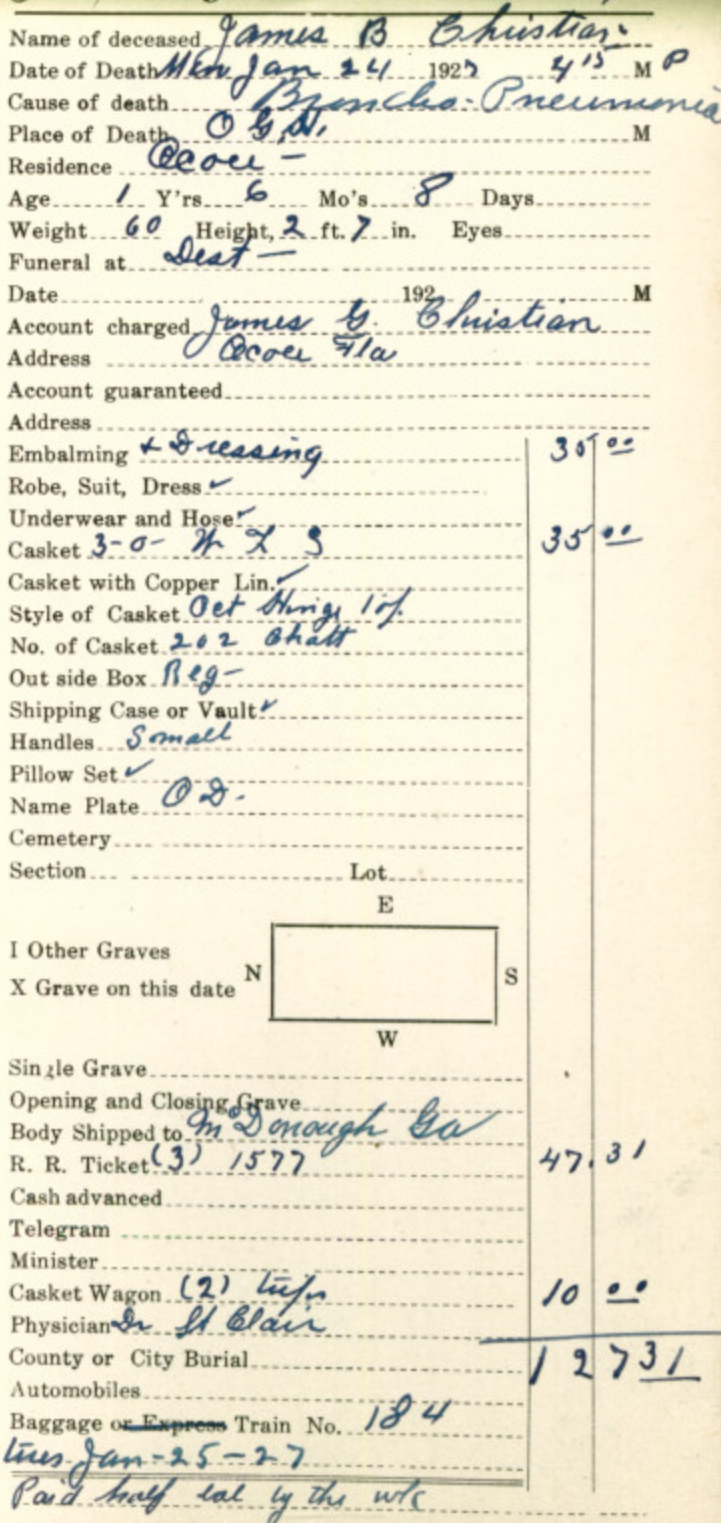 Name of deceased James B Christian
Date of Death Mon Jan 24 1927 4 15 M P
Cause of death Broncho-Pneumonia
Place of Death O G H. M
Residence Ocoee -
Age 1 Y'rs 6 Mo's 8 Days
Weight 60 Height, 2 ft. 7 in. Eyes
Funeral at Dest -
Date 192 M
Account charged James G. Christian
Address Ocoee Fla
Account guaranteed
Address
Embalming + Dressing 35 00
Robe, Suit, Dress ✓
Underwear and Hose ✓
Casket 3-0- W L S 35 00
Casket with Copper Lin. ✓
Style of Casket Oct Hinge
No. of Casket 202 Chatt
Out side Box Reg -
Shipping Case or Vault ✓
Handles Small
Pillow Set ✓
Name Plate O D -
Cemetery
Section Lot
E
I Other Graves
N S
X Grave on this date
W
Single Grave
Opening and Closing Grave
Body Shipped to McDonough Ga
R. R. Ticket (3) 1577 47.31
Cash advanced
Telegram
Minister
Casket Wagon (2) trips 10 00
Physician Dr St Clair
County or City Burial 127 31
Automobiles
Baggage or Express Train No. 184
tues Jan-25-27
Paid half bal by the wk